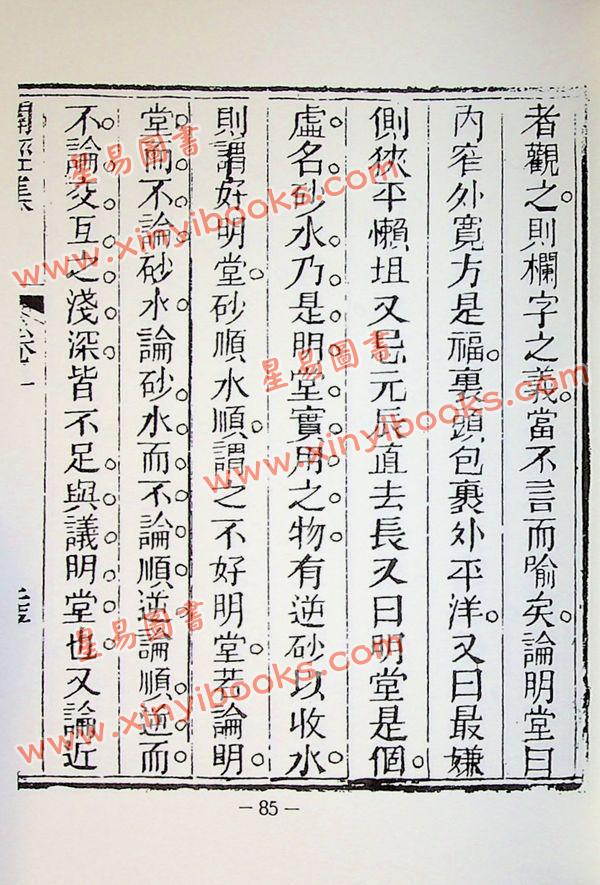 者觀之則欄字之義當不言而喻矣論明堂曰
內窄外寬方是福裏頭包裹外平洋又曰最嫌
側狹平懶坦又忌元辰直去長又曰明堂是個
虛名砂水乃是明堂實用之物有逆砂以收水
則謂好明堂砂順水順謂之不好明堂若論明
堂而不論砂水論砂水而不論順逆論順逆而
不論交互之淺深皆不足與議明堂也又論近
星易圖書
www.xinyibooks.com
星易圖書
www.xinyibooks.com
星易圖書
www.xinyibooks.com
－85－